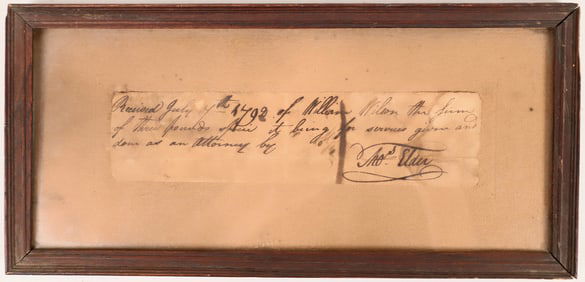 Received July 4th 1792 of William Wilson the Sum
of three pounds it being for services given and
done as an Attorney by
Thos. Elder